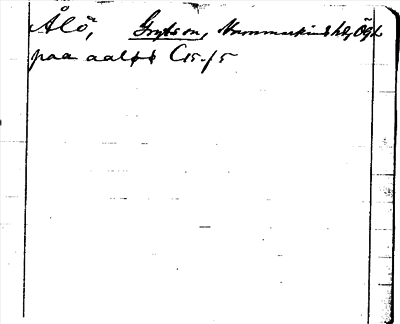 Ålö, Grytson, Hammarkinds hd, Ögl.
paa aalöö C15-/5